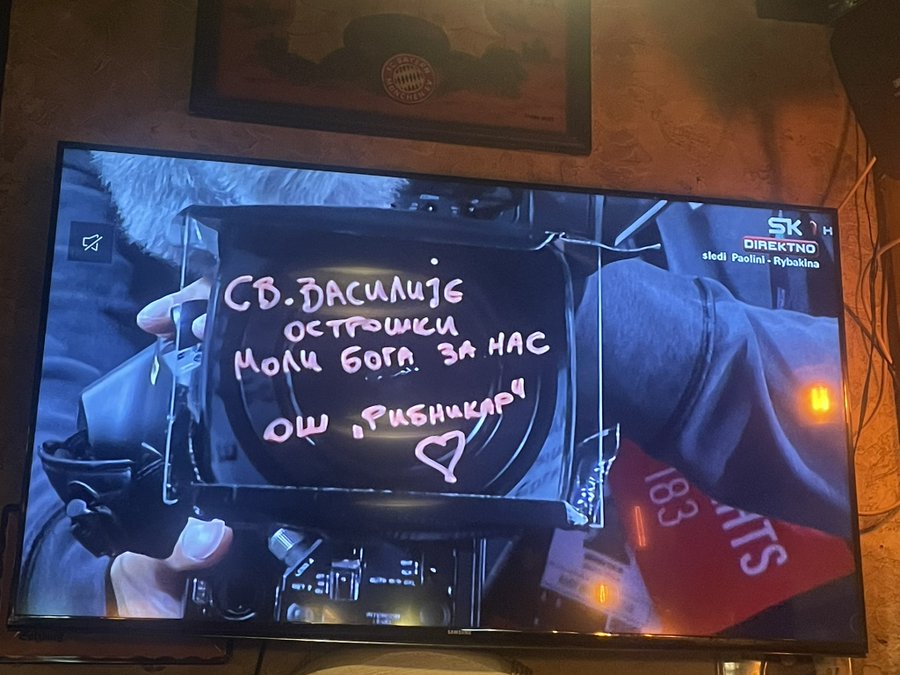 FC BAYERN
MÜNCHEN EV
SK H
DIREKTNO
sledi Paolini - Rybakina
СВ. ВАСИЛИЈЕ
ОСТРОШКИ
МОЛИ БОГА ЗА НАС
ОШ „РИБНИКАР"
183
HTS
SAMSUNG